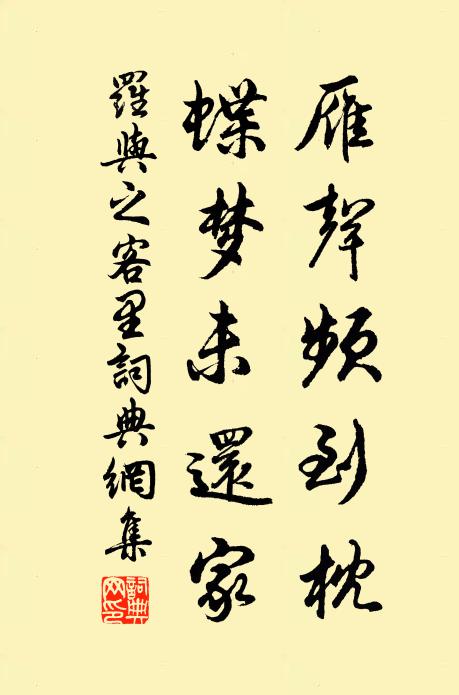 雁聲頻到枕
蝶梦未還家
羅與之客里詞典網集
詞典
网印